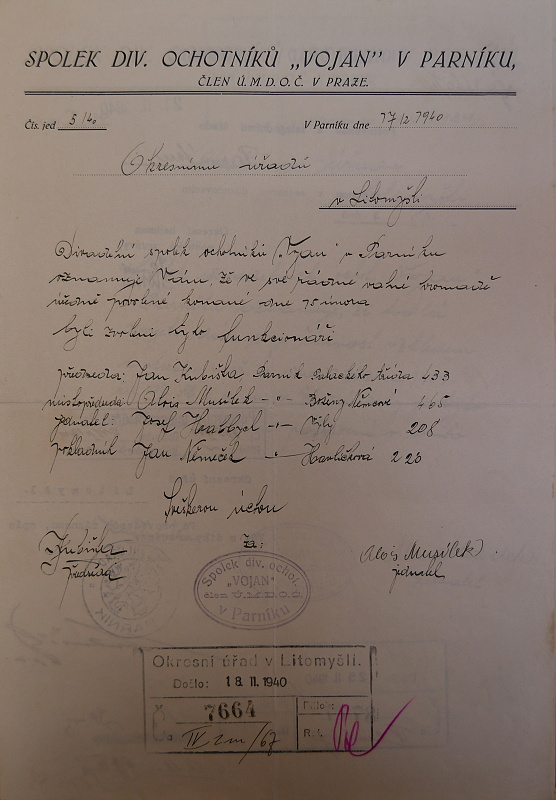 SPOLEK DIV. OCHOTNÍKŮ „VOJAN" V PARNÍKU,
ČLEN Ú. M. D. O. Č. V PRAZE.
Čís. jed 5/40
V Parníku dne 17/2 1940
Okresnímu úřadu
v Litomyšli
Divadelní spolek ochotníků „Vojan" v Parníku
oznamuje Vám, že ve své řádné valné hromadě
úředně povolené konané dne 15 února
byli zvoleni tyto funkcionáři
předseda: Jan Kubiška Parník Palackého třída 433
místopředseda: Alois Musílek -"- Boženy Němcové 465
jednatel: Josef -"- 208
pokladník Jan Němeček -"- Havlíčková 220
Veškerou úctou
Za:
Kubiška
předseda
Alois Musílek
jednatel
Spolek div. ochot.
„VOJAN"
člen Ú.M.D.O.Č.
v Parníku
Okresní úřad v Litomyšli.
Došlo: 18. II. 1940
Č. 7664
Příloh:
R. t.